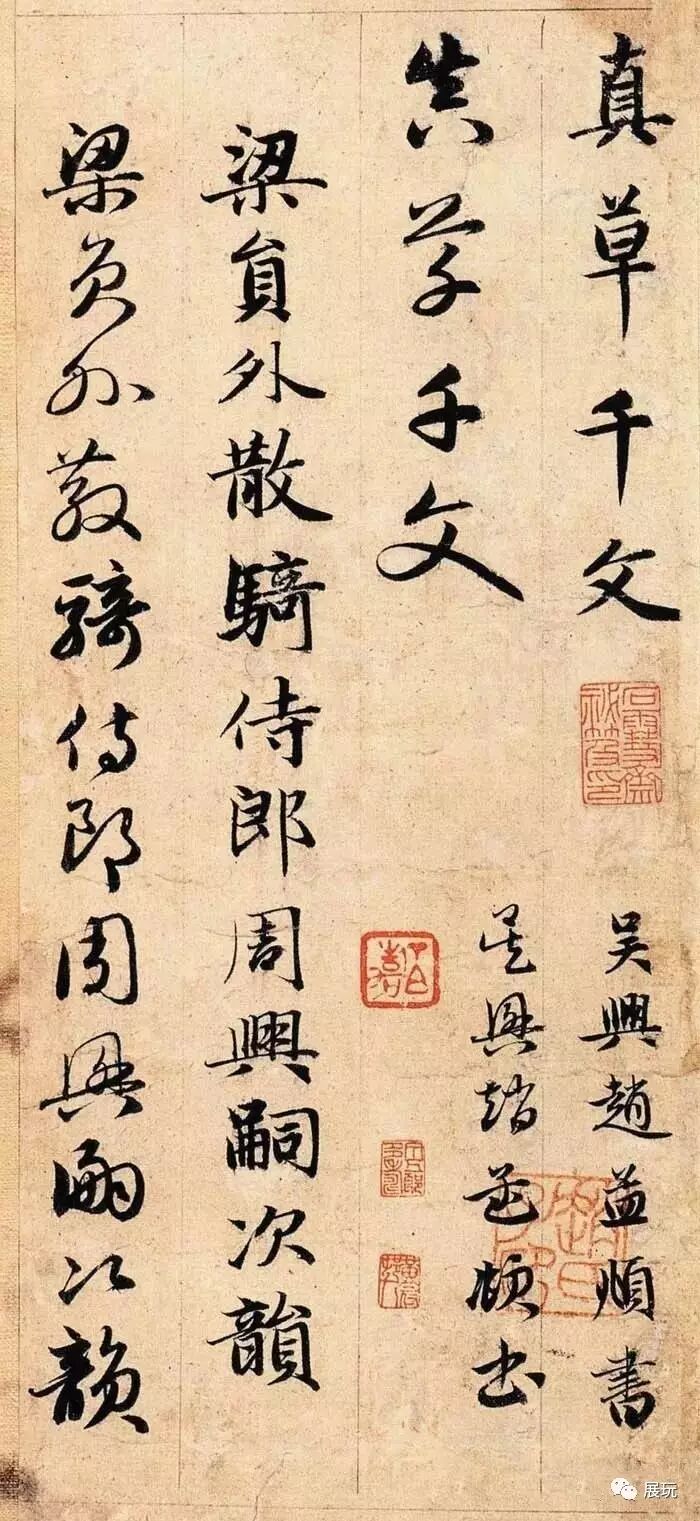 真草千文
吳興趙孟頫書
真草千文
吳興趙孟頫書
梁員外散騎侍郎周興嗣次韻
梁員外散騎侍郎周興嗣次韻
展玩